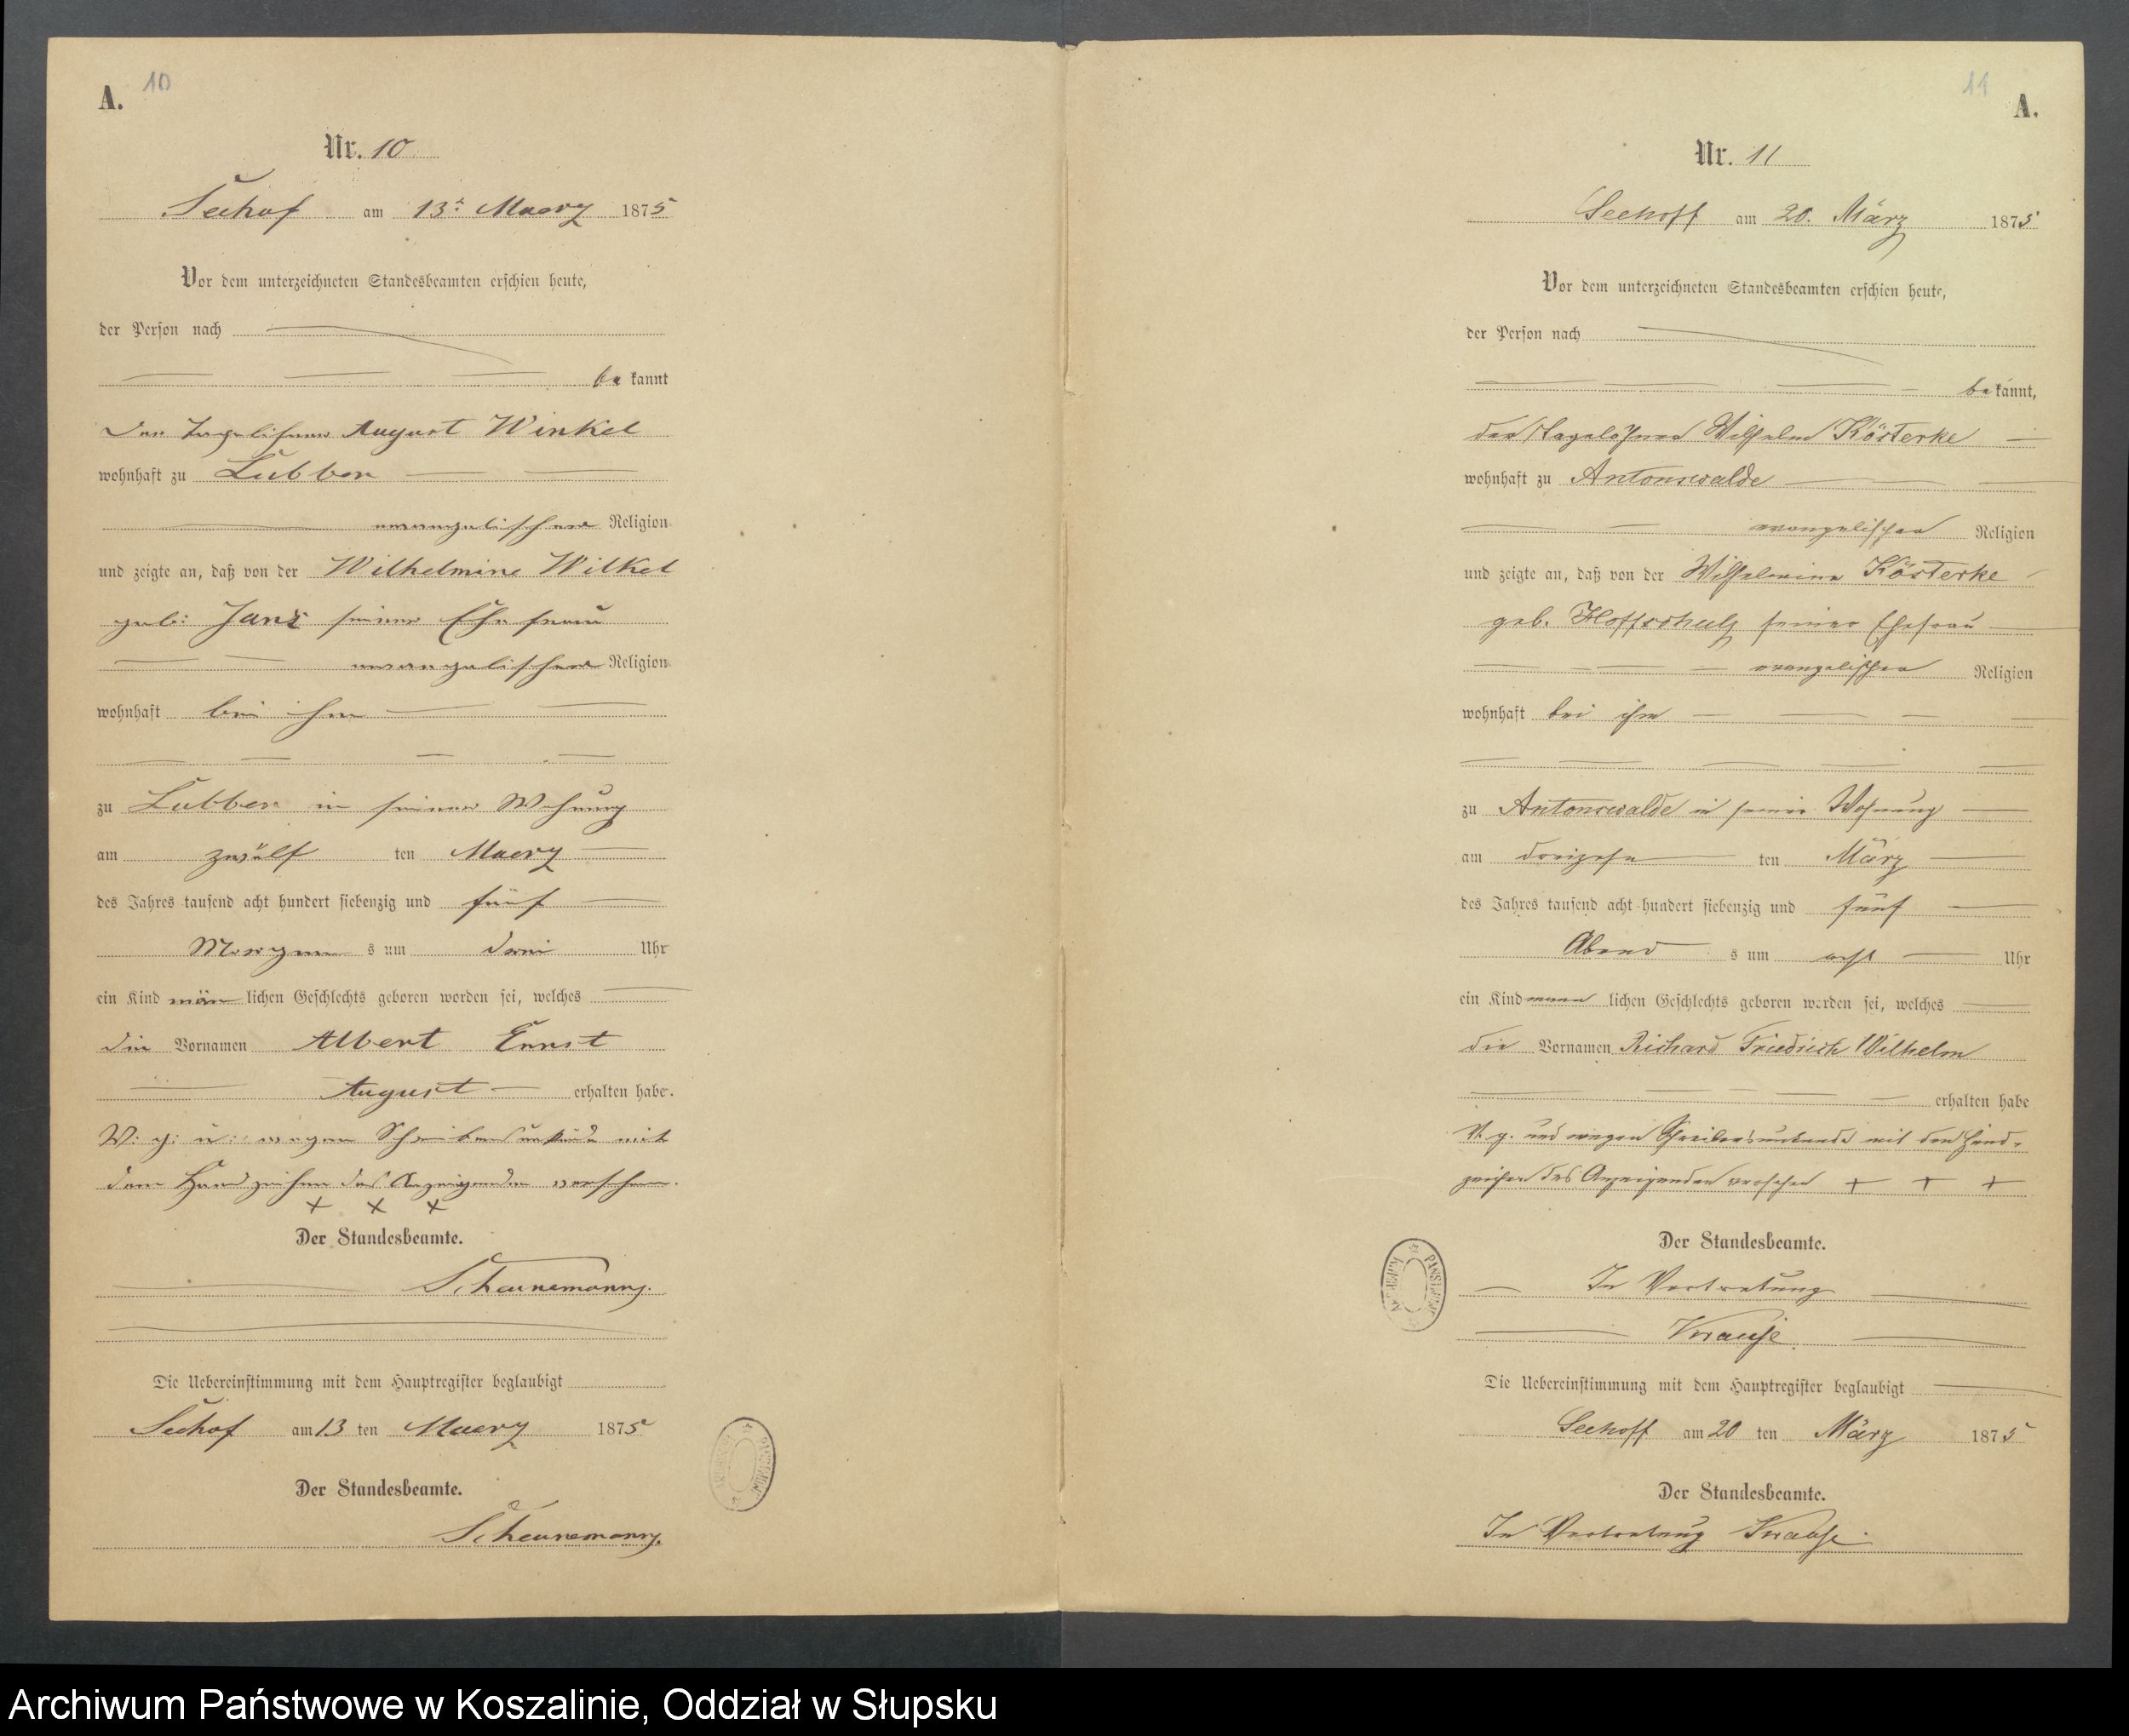 A. 10
Nr. 10
Seehof am 13t Maerz 1875
Vor dem unterzeichneten Standesbeamten erschien heute,
der Person nach
be kannt
der Tagelöhner August Winkel
wohnhaft zu Lübben
evangelischer Religion
und zeigte an, daß von der Wilhelmine Wilkel
geb: Jans seiner Ehefrau
evangelischer Religion
wohnhaft bei ihm
zu Lübben in seiner Wohnung
am zwölf ten Maerz
des Jahres tausend acht hundert siebenzig und fünf
Morgen s um drei Uhr
ein Kind män lichen Geschlechts geboren worden sei, welches
die Vornamen Albert Ernst
August erhalten habe.
V: g: u: wegen Schreibensunkunde mit
dem Handzeichen des Anzeigenden versehen.
+ + +
Der Standesbeamte.
Scheunemann.
Die Uebereinstimmung mit dem Hauptregister beglaubigt
Seehof am 13 ten Maerz 1875
Der Standesbeamte.
Scheunemann.
11 A.
Nr. 11
Seehoff am 20. März 1875
Vor dem unterzeichneten Standesbeamten erschien heute,
der Person nach
be kannt,
der Tagelöhner Wilhelm Kösterke
wohnhaft zu Antonswalde
evangelischer Religion
und zeigte an, daß von der Wilhelmine Kösterke
geb. Hoffschulz seiner Ehefrau
evangelischer Religion
wohnhaft bei ihm
zu Antonswalde in seiner Wohnung
am dreizehn ten März
des Jahres tausend acht hundert siebenzig und fünf
Abend s um acht Uhr
ein Kind männ lichen Geschlechts geboren worden sei, welches
die Vornamen Richard Friedrich Wilhelm
erhalten habe
V. g. und wegen Schreibensunkunde mit dem Hand-
zeichen des Anzeigenden versehen + + +
Der Standesbeamte.
In Vertretung
Krause
Die Uebereinstimmung mit dem Hauptregister beglaubigt
Seehoff am 20 ten März 1875
Der Standesbeamte.
In Vertretung Krause.
Archiwum Państwowe w Koszalinie, Oddział w Słupsku